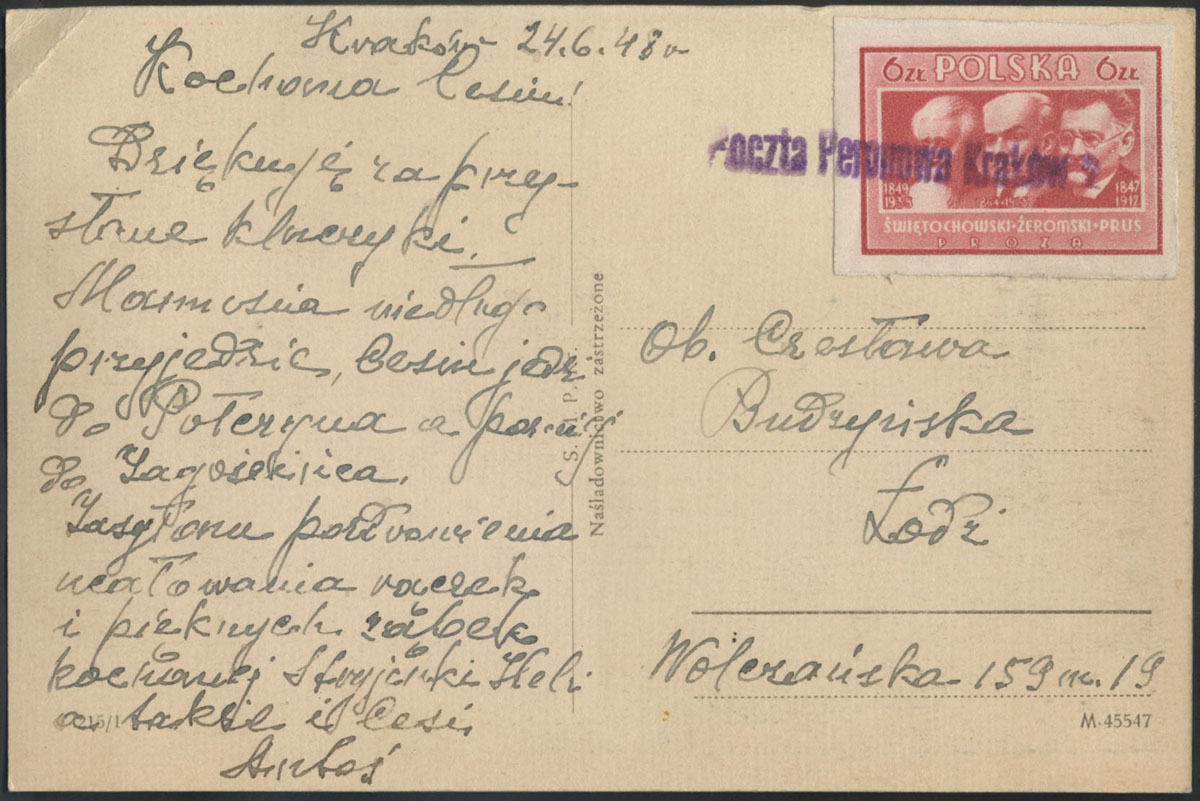 Kraków 24.6.48 r
Kochana Cesiu!
Dziękuję za przy-
słane kluczyki.
Mamusia niedługo
przyjedzie, Cesiu jedź
do Poterzyna a
do
Zasyłam pozdrowienia
ucałowania rączek
i pięknych ząbek
kochanej Stryjenki Heli
a także i Cesi
Antoś
215/1
C.S.M.P.
Naśladownictwo zastrzeżone
6ZŁ POLSKA 6ZŁ
1849
1938
1864-1925
1847
1912
ŚWIĘTOCHOWSKI·ŻEROMSKI·PRUS
PROZA
Poczta Peronowa Kraków 2
Ob. Czesława
Budzyńska
Łodzi
Wólczańska 159 m. 19
M-45547